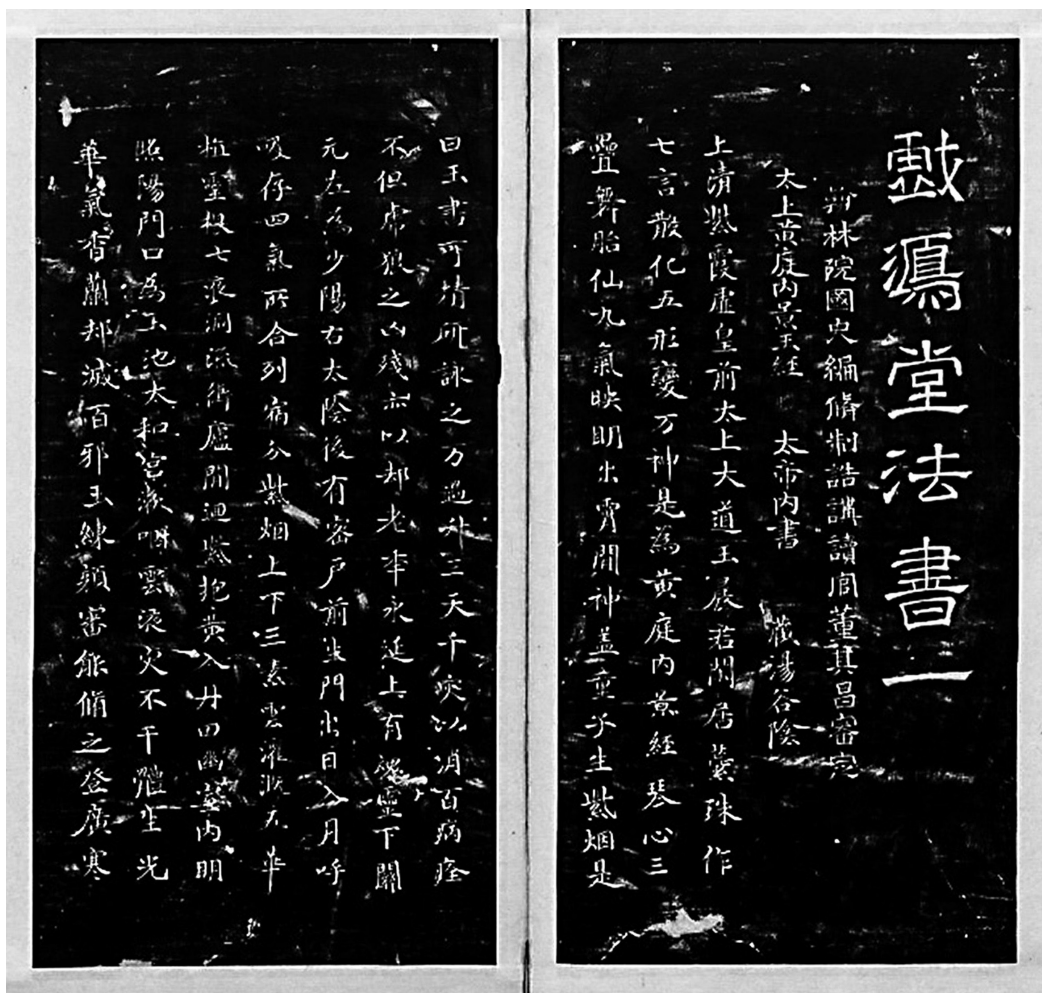 戲鴻堂法書一
翰林院國史編脩制誥講讀官董其昌審定
太上黃庭內景玉經 太帝內書 藏湯谷陰
上清紫霞虛皇前太上大道玉晨君閒居蘂珠作
七言散化五形變万神是為黃庭內景經琴心三
疊舞胎仙九氣映明出霄間神盖童子生紫烟是
曰玉書可精研詠之万過升三天千灾以消百病痊
不但虎狼之凶殘亦以却老年永延上有魂靈下關
元左為少陽右太陰後有密戶前生門出日入月呼
吸存四氣所合列宿分紫烟上下三素雲灌溉五華
植靈根七液洞流衝廬間迴紫抱黃入丹田幽室內明
照陽門口為玉池太和宮漱咽靈液灾不干體生光
華氣香蘭却滅百邪玉練顏審能脩之登廣寒